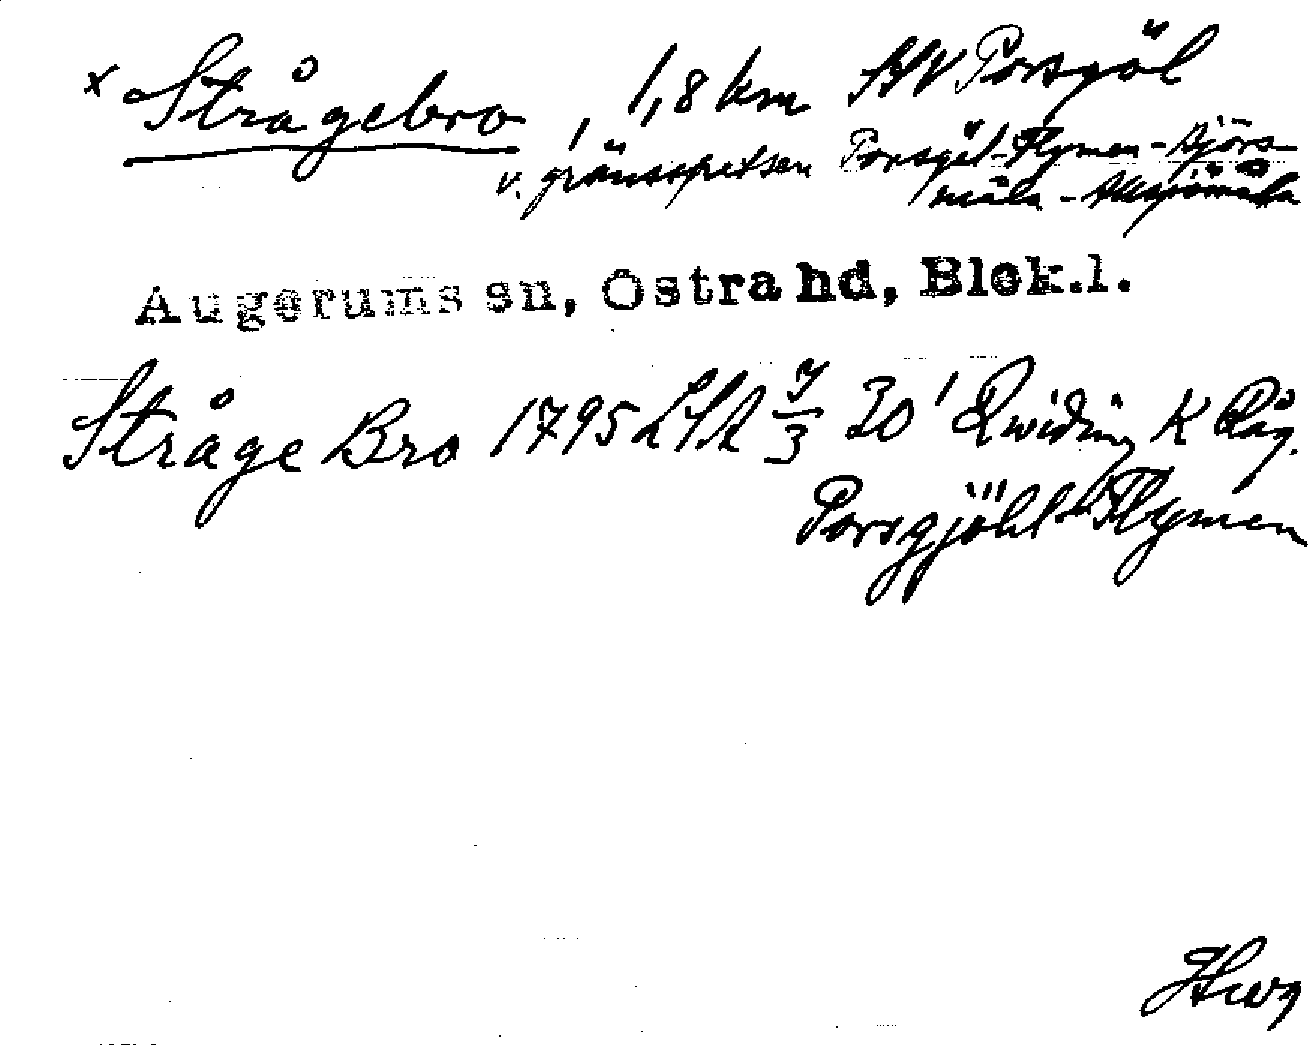 x Strågebro, 1,8 km NV Porsgöl
v. gränsspetsen Porsgöl-Flymen-Björs-
måla-
Augerums sn, Östra hd, Blek.l.
Stråge Bro 1795 LSA 7/3 30' Qwiding K Råg.
Porsgjöhl - Flymen